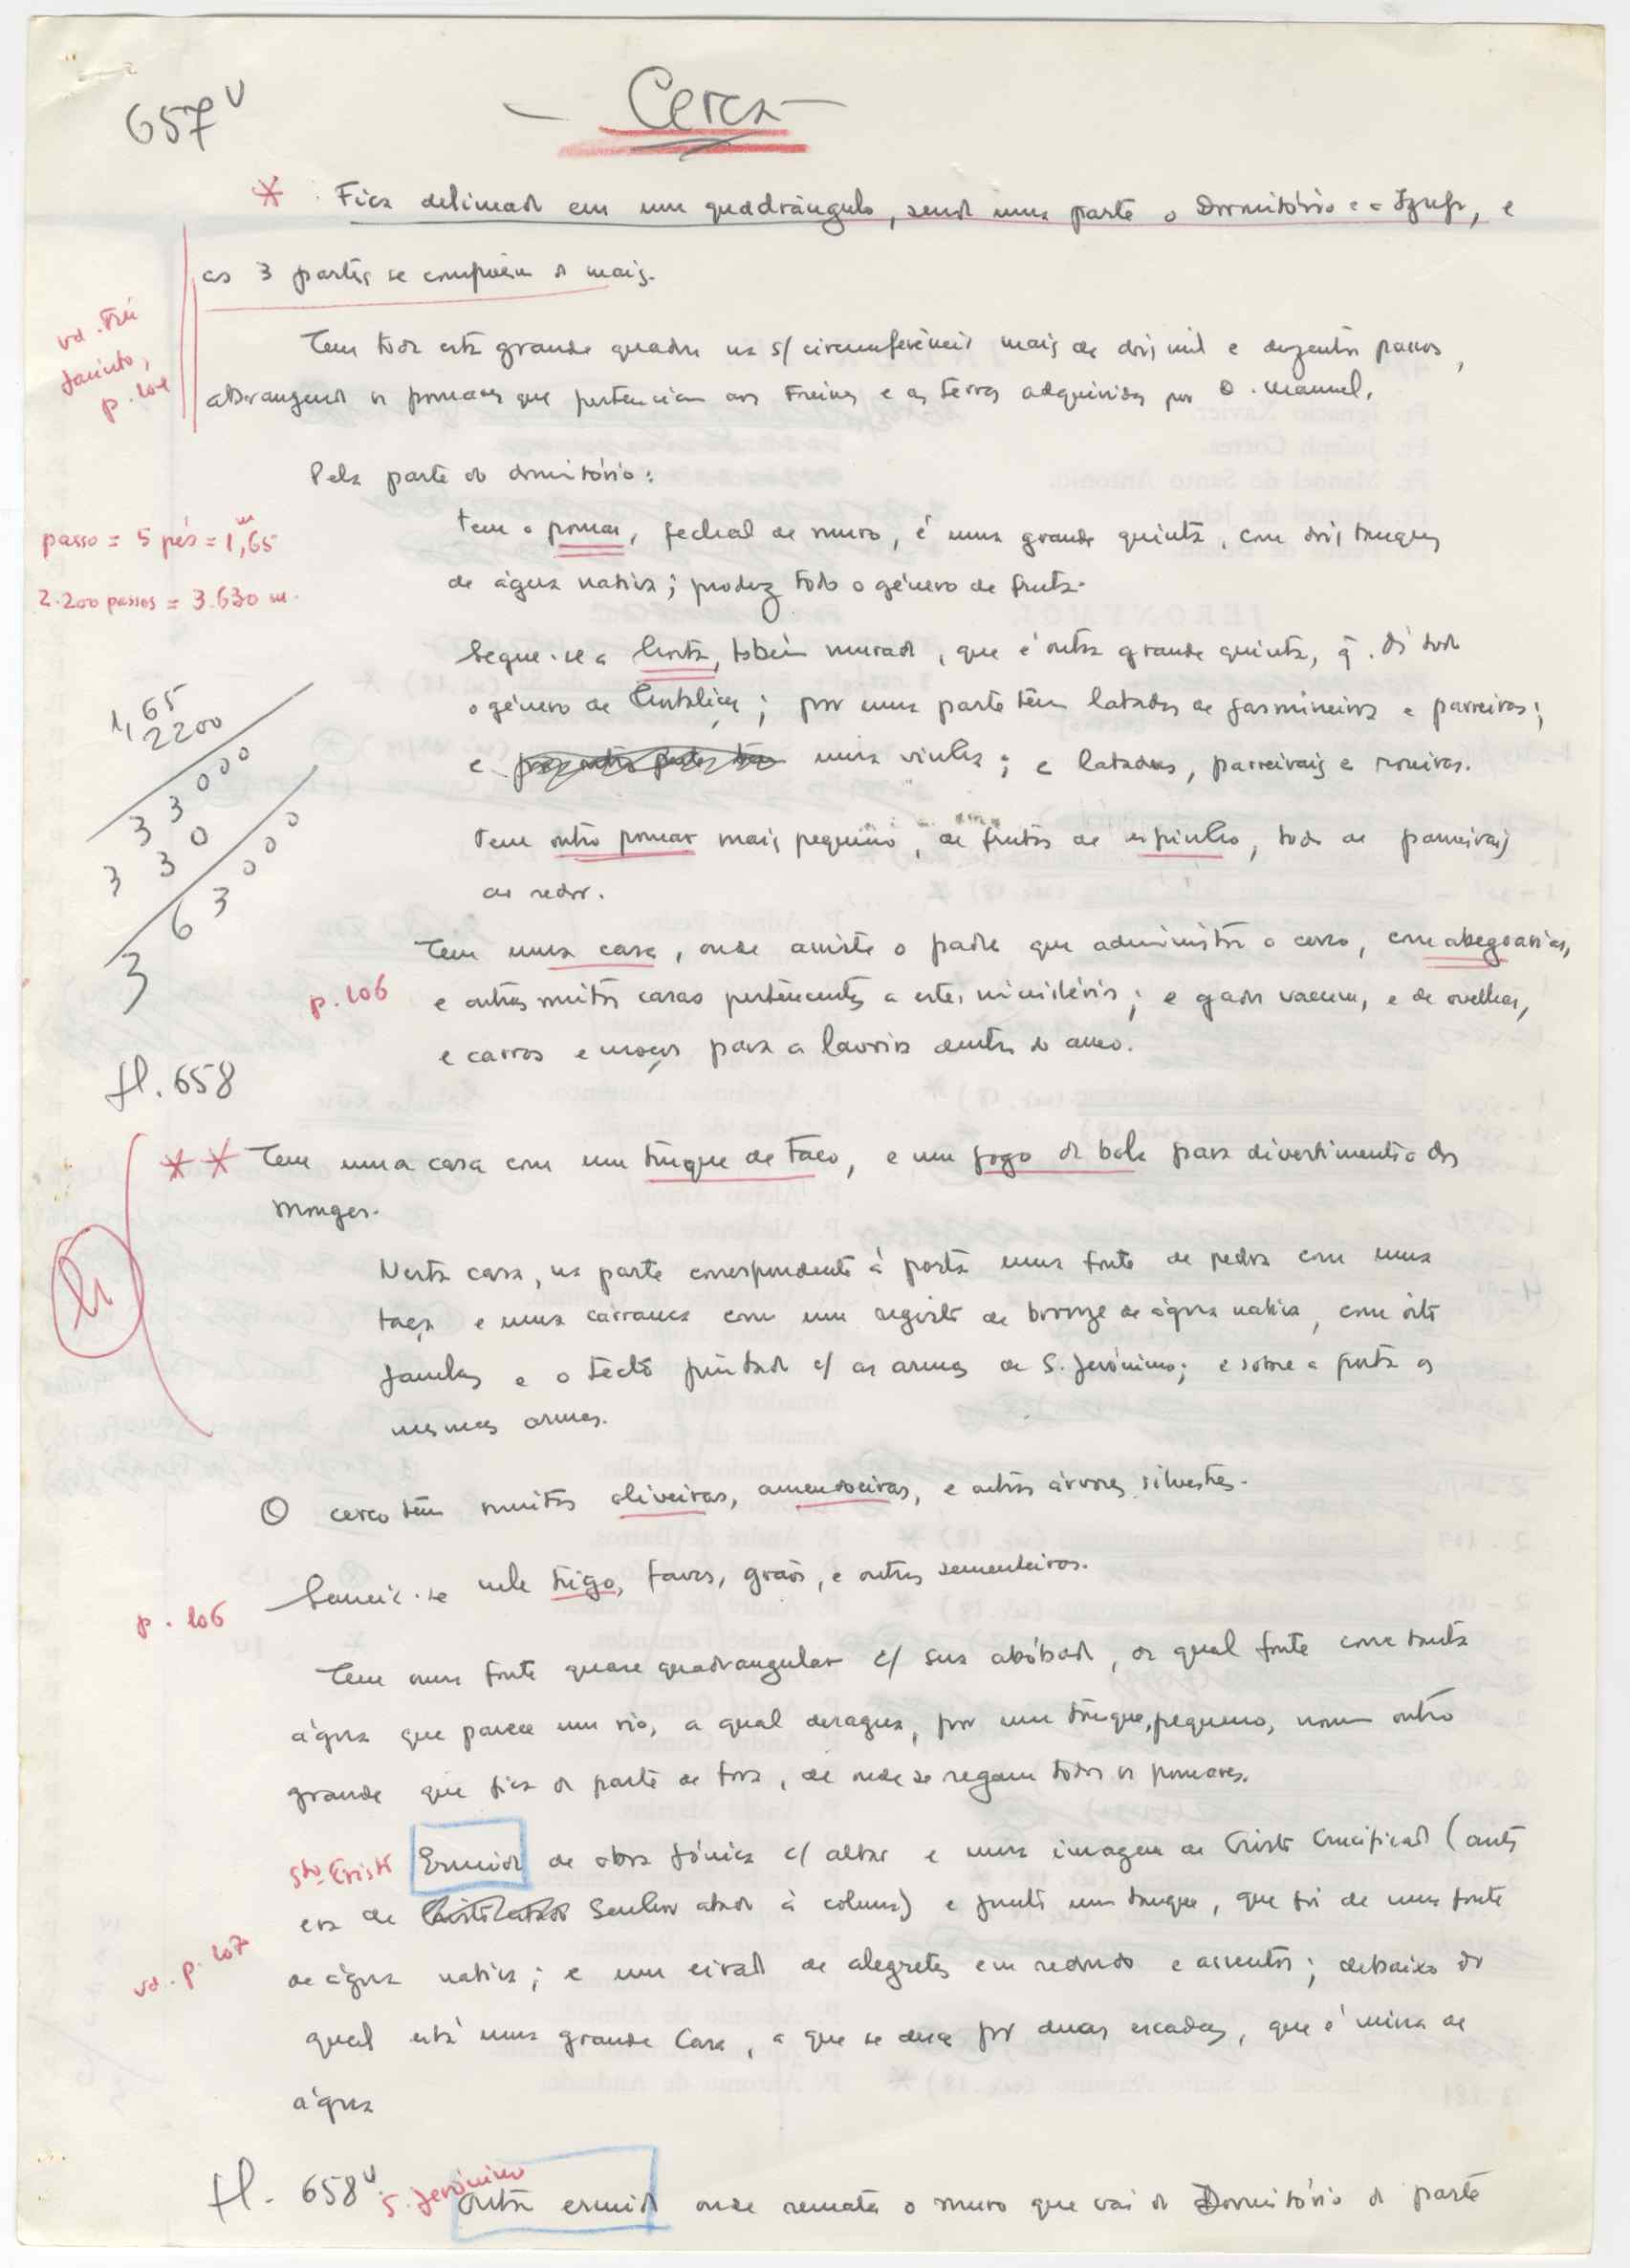 657v
- Cerca -
* Fica delimitada em um quadrângulo, sendo uma parte o Dormitório e a Igreja, e
as 3 partes se compõem do mais.
vd. Frei
Jacinto,
p. 104
Tem toda esta grande quadra na s/ circunferência mais de dois mil e duzentos passos,
abrangendo os pomares que pertenciam aos Freires e as terras adquiridas por D. Manuel.
Pela parte do dormitório:
tem o pomar, fechado de muro, é uma grande quinta, com dois tanques
de água nativa; produz todo o género de fruta.
passo = 5 pés = 1,65 m
2.200 passos = 3.630 m.
Segue-se a horta, também murada, que é outra grande quinta, q. dá todo
o género de hortaliças; por uma parte têm latadas de jasmineiros e parreiras;
e uma vinha; e latadas, parreirais e roseiras.
1,65
2200
33000
330
3630,00
Tem outro pomar mais pequeno, de frutas de espinho, todo de parreirais
ao redor.
Tem uma casa, onde assiste o padre que administra a cerca, com abegoarias,
p. 106
e outras muitas casas pertencentes a este ministério; e gado vacum, e de ovelhas,
e carros e moços para a lavoira dentro do ano.
fl. 658
** Tem uma casa com um truque de taco, e um jogo de bola para divertimento dos
monges.
Nesta casa, na parte correspondente à porta uma fonte de pedra com uma
taça e uma carranca com um registo de bronze de água nativa, com oito
janelas e o tecto pintado c/ as armas de S. Jerónimo; e sobre a porta as
mesmas armas.
O cerco têm muitas oliveiras, amendoeiras, e outras árvores silvestres.
Semeia-se nele trigo, favas, grãos, e outras sementeiras.
p. 106
Tem uma fonte quase quadrangular c/ sua abóbada, da qual fonte corre tanta
água que parece um rio, a qual desagua, por um tanque, pequeno, num outro
grande que fica da parte de fora, de onde se regam todos os pomares.
Sto. Cristo
Ermida de obra jónica c/ altar e uma imagem de Cristo Crucificado (antes
era de Senhor atado à coluna) e junto um tanque, que foi de uma fonte
vd. p. 107
de água nativa; e um eirado de alegretes em redondo e assentos; debaixo do
qual está uma grande casa, a que se desce por duas escadas, que é mina de
água
fl. 658v.
S. Jerónimo
Outra ermida onde remata o muro que vai do Dormitório da parte